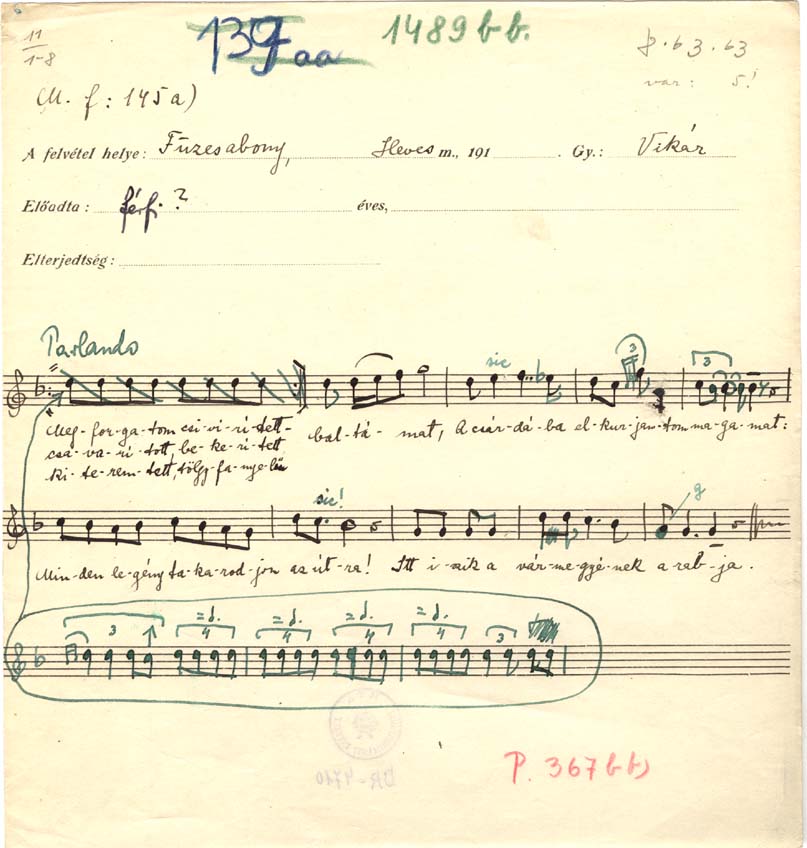 11
1-8
139 aa
1489 b b.
8.63.63
var: 5!
(M. f: 145a)
A felvétel helye: Füzesabony, Heves m., 191 . Gy.: Vikár
Előadta: férfi ? éves,
Elterjedtség:
Parlando
3 sic 3
Meg-for-ga-tom csi-vi-ri-tett- bal-tá-mat, A csár-dá-ba el-kur-jan-tom ma-ga-mat:
csa-va-ri-tott, be-ke-ri-tett
ki-te-rem-tett, tölgy-fa-nye-lű
sic! g
Min-den le-gény ta-ka-rod-jon az út-ra! Itt i-szik a vár-me-gyé-nek a rab-ja.
3 4 4 4 4 3
P. 367 b b)